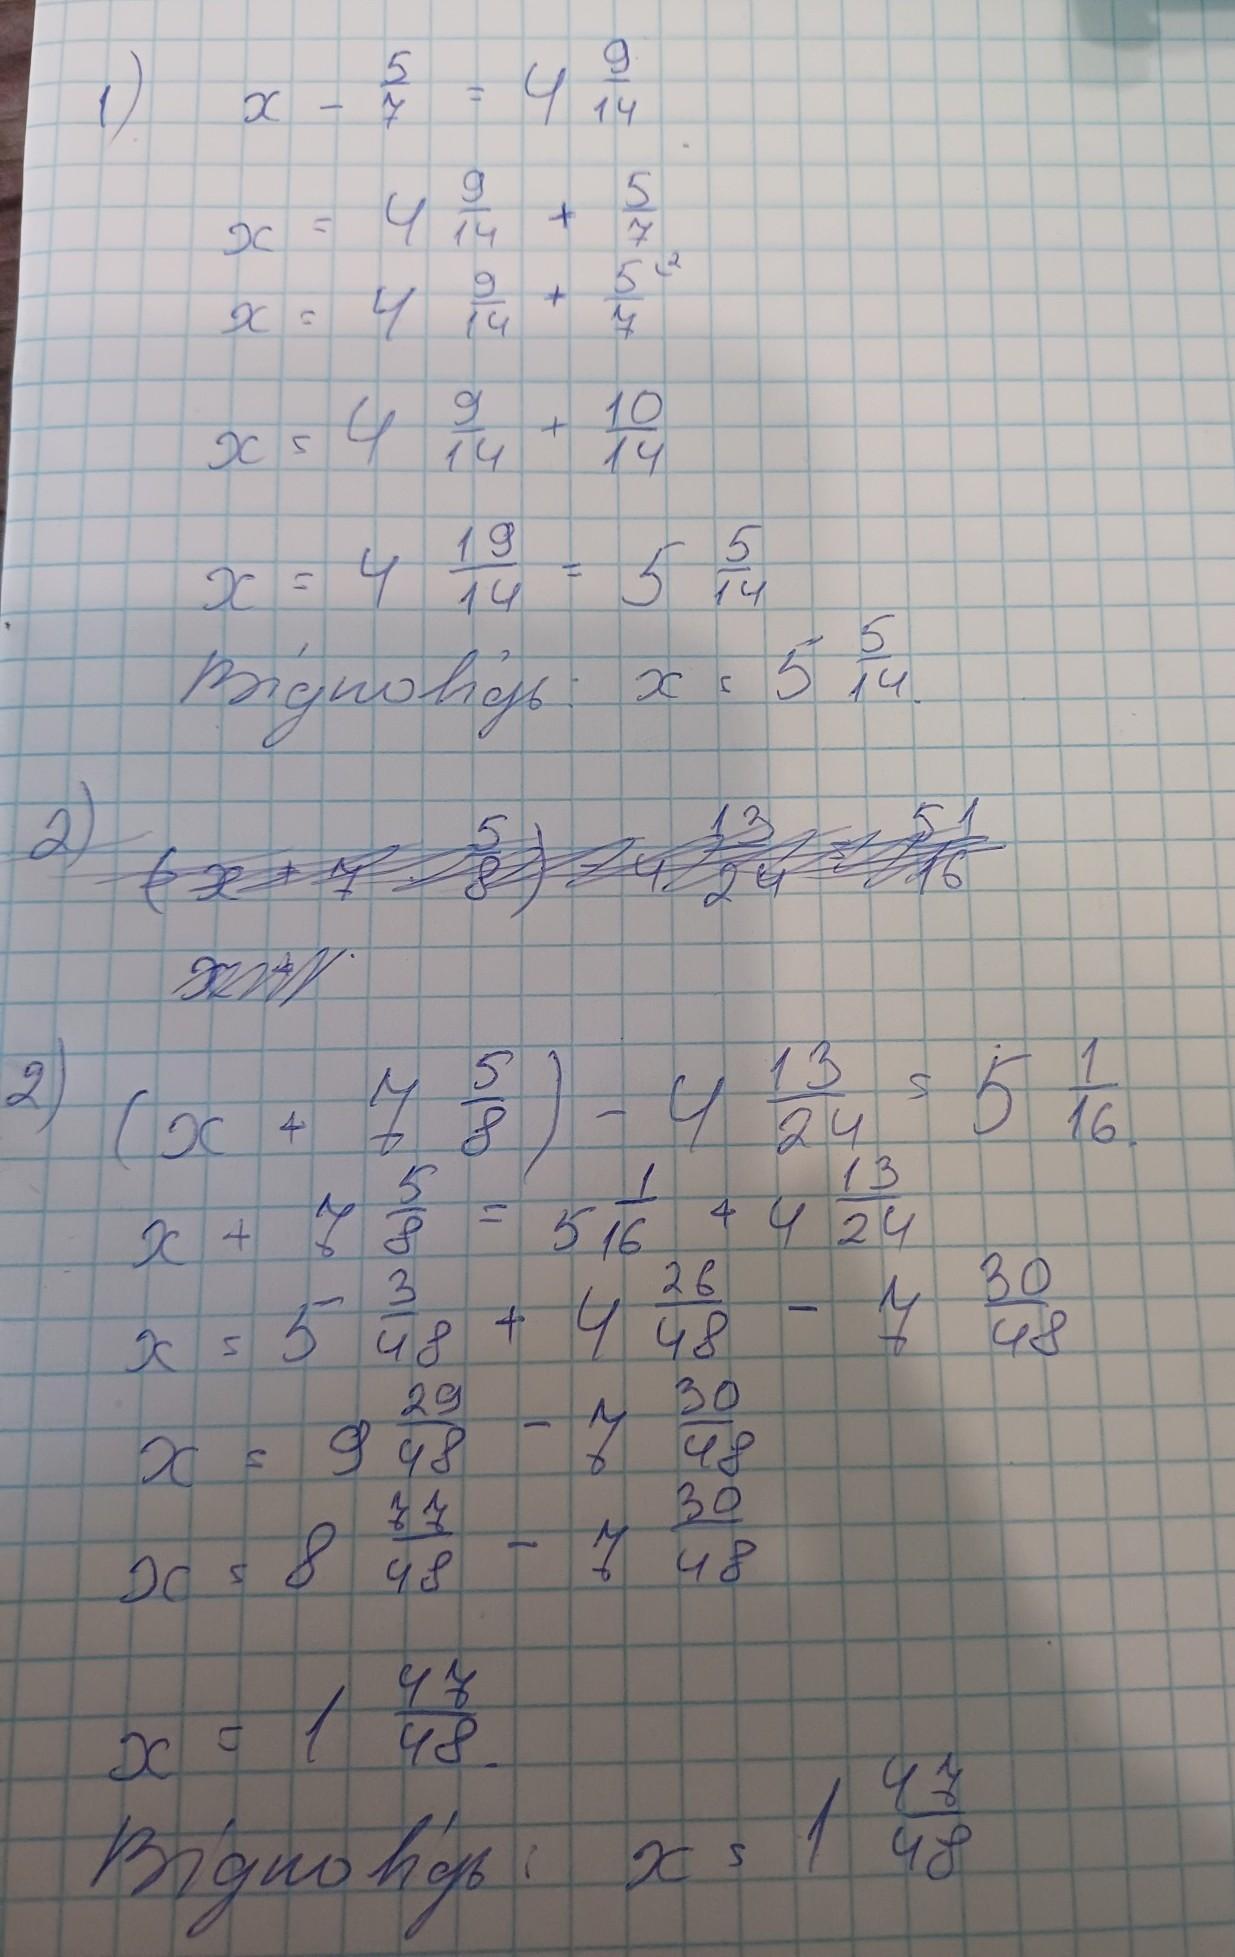 1) x - 5/7 = 4 9/14
x = 4 9/14 + 5/7
x = 4 9/14 + 5/7 ²
x = 4 9/14 + 10/14
x = 4 19/14 = 5 5/14
Відповідь: x = 5 5/14.
2) (x + 7 5/8) - 4 13/24 = 51/16
2) (x + 7 5/8) - 4 13/24 = 5 1/16.
x + 7 5/8 = 5 1/16 + 4 13/24
x = 5 3/48 + 4 26/48 - 7 30/48
x = 9 29/48 - 7 30/48
x = 8 77/48 - 7 30/48
x = 1 47/48.
Відповідь: x = 1 47/48